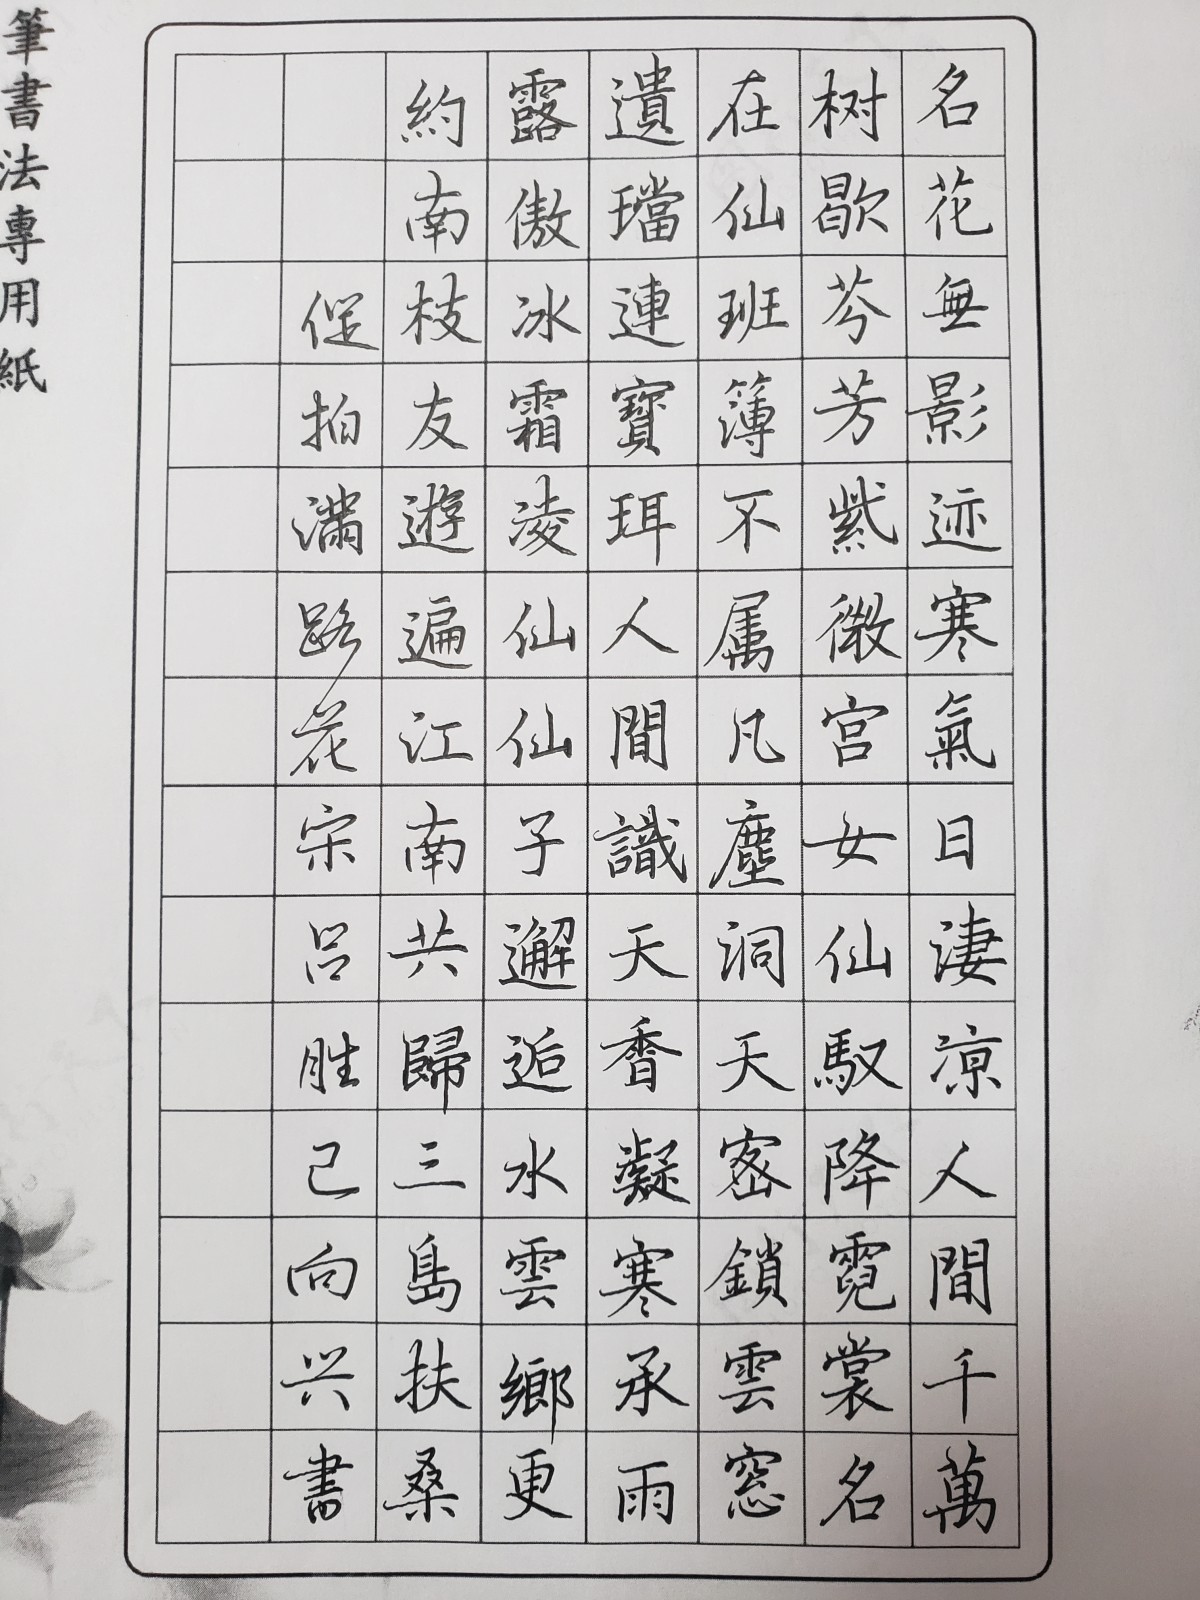 名花無影迹寒氣日淒凉人間千萬
树歇芬芳紫微宫女仙馭降霓裳名
在仙班簿不属凡塵洞天密鎖雲窓
遺璫連寶珥人間識天香凝寒承雨
露傲冰霜凌仙仙子邂逅水雲鄉更
約南枝友遊遍江南共歸三島扶桑
促拍满路花宋吕胜己向兴書
筆書法專用紙